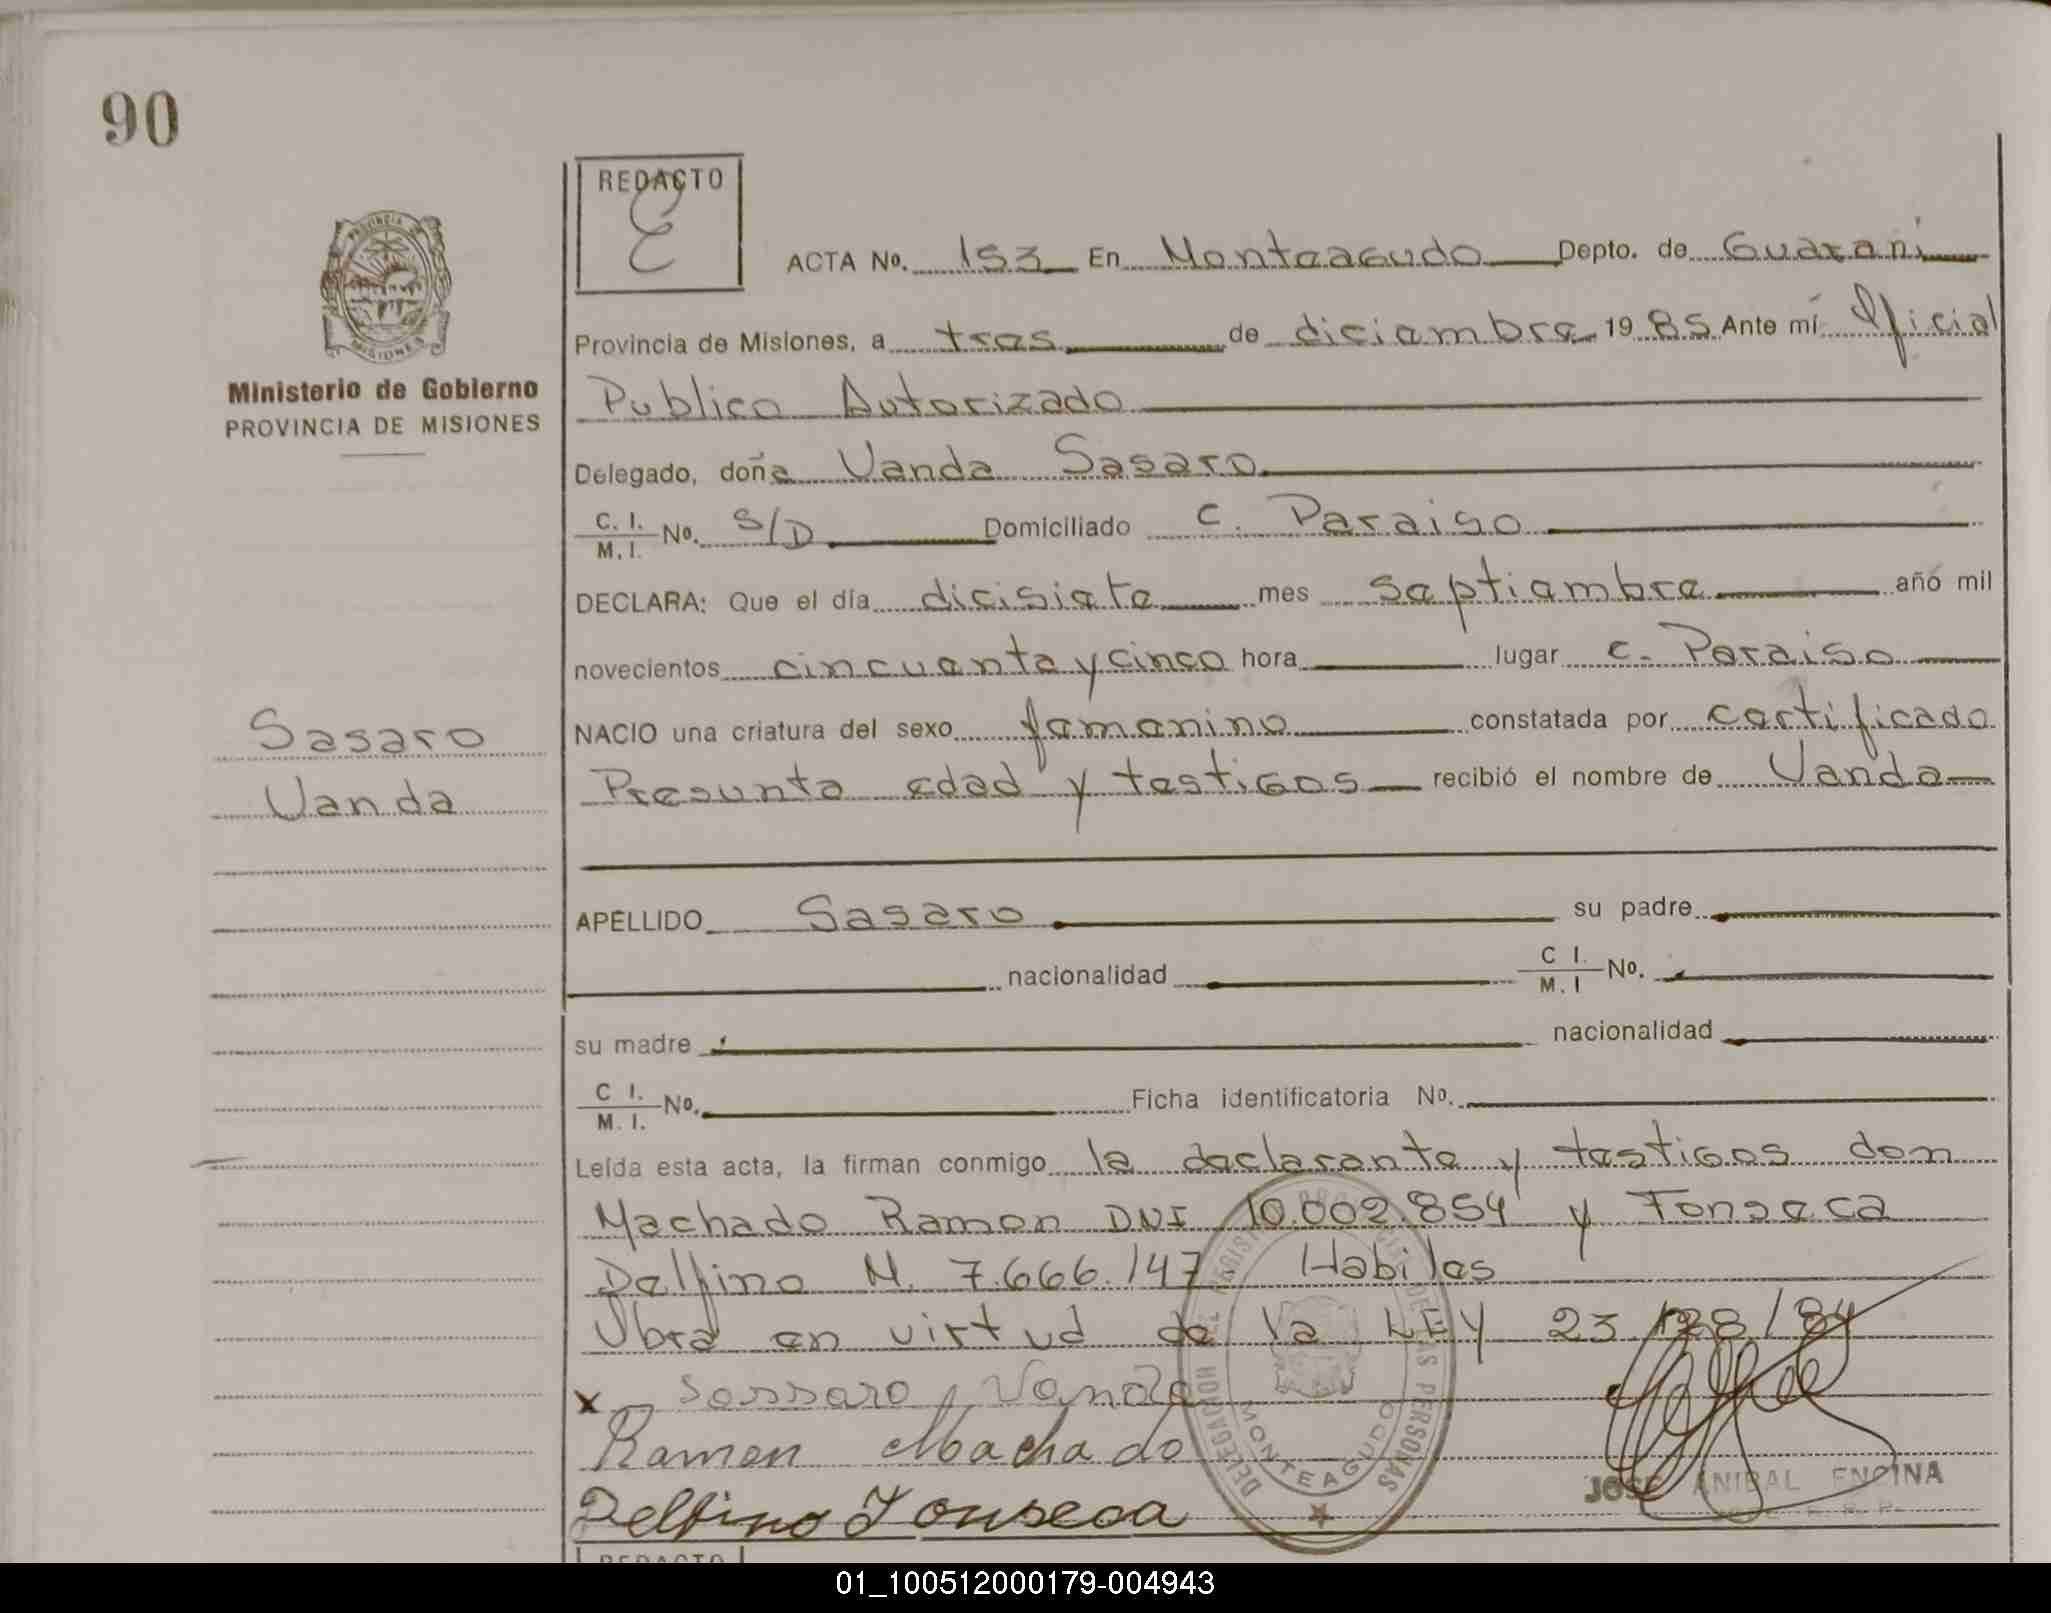 90
REDACTO
E
ACTA No. 153 En Monteagudo Depto. de Guarani
Provincia de Misiones, a tres de diciembre 1985 Ante mí Oficial
Publico Autorizado
Ministerio de Gobierno
PROVINCIA DE MISIONES
Delegado, doña Vanda Sasaro
C. I. / M. I. No. S/D Domiciliado C. Paraiso
DECLARA: Que el día dicisiete mes septiembre año mil
novecientos cincuenta y cinco hora lugar C. Paraiso
Sasaro
Vanda
NACIO una criatura del sexo femenino constatada por certificado
Presunta edad y testigos recibió el nombre de Vanda
APELLIDO Sasaro su padre
nacionalidad C I. / M. I No.
su madre nacionalidad
C I. / M. I. No. Ficha identificatoria No.
Leída esta acta, la firman conmigo la declarante y testigos don
Machado Ramon DNI 10.002.854 y Fonseca
Delfino M. 7.666.147 Habiles
Obra en virtud de la LEY 23/128/84
x Sossaro Vanda
Ramon Machado
Delfino Fonseca
DELEGACION DEL REGISTRO PROVINCIAL DE LAS PERSONAS
MONTEAGUDO
JOSE ANIBAL ENCINA
REDACTO
01_100512000179-004943